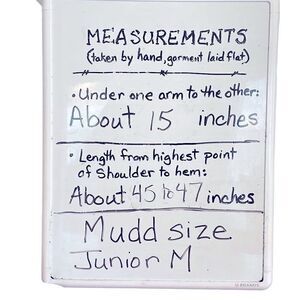 MEASUREMENTS
(taken by hand, garment laid flat)
• Under one arm to the other:
About 15 inches
• Length from highest point
of shoulder to hem:
About 45 to 47 inches
Mudd size
Junior M